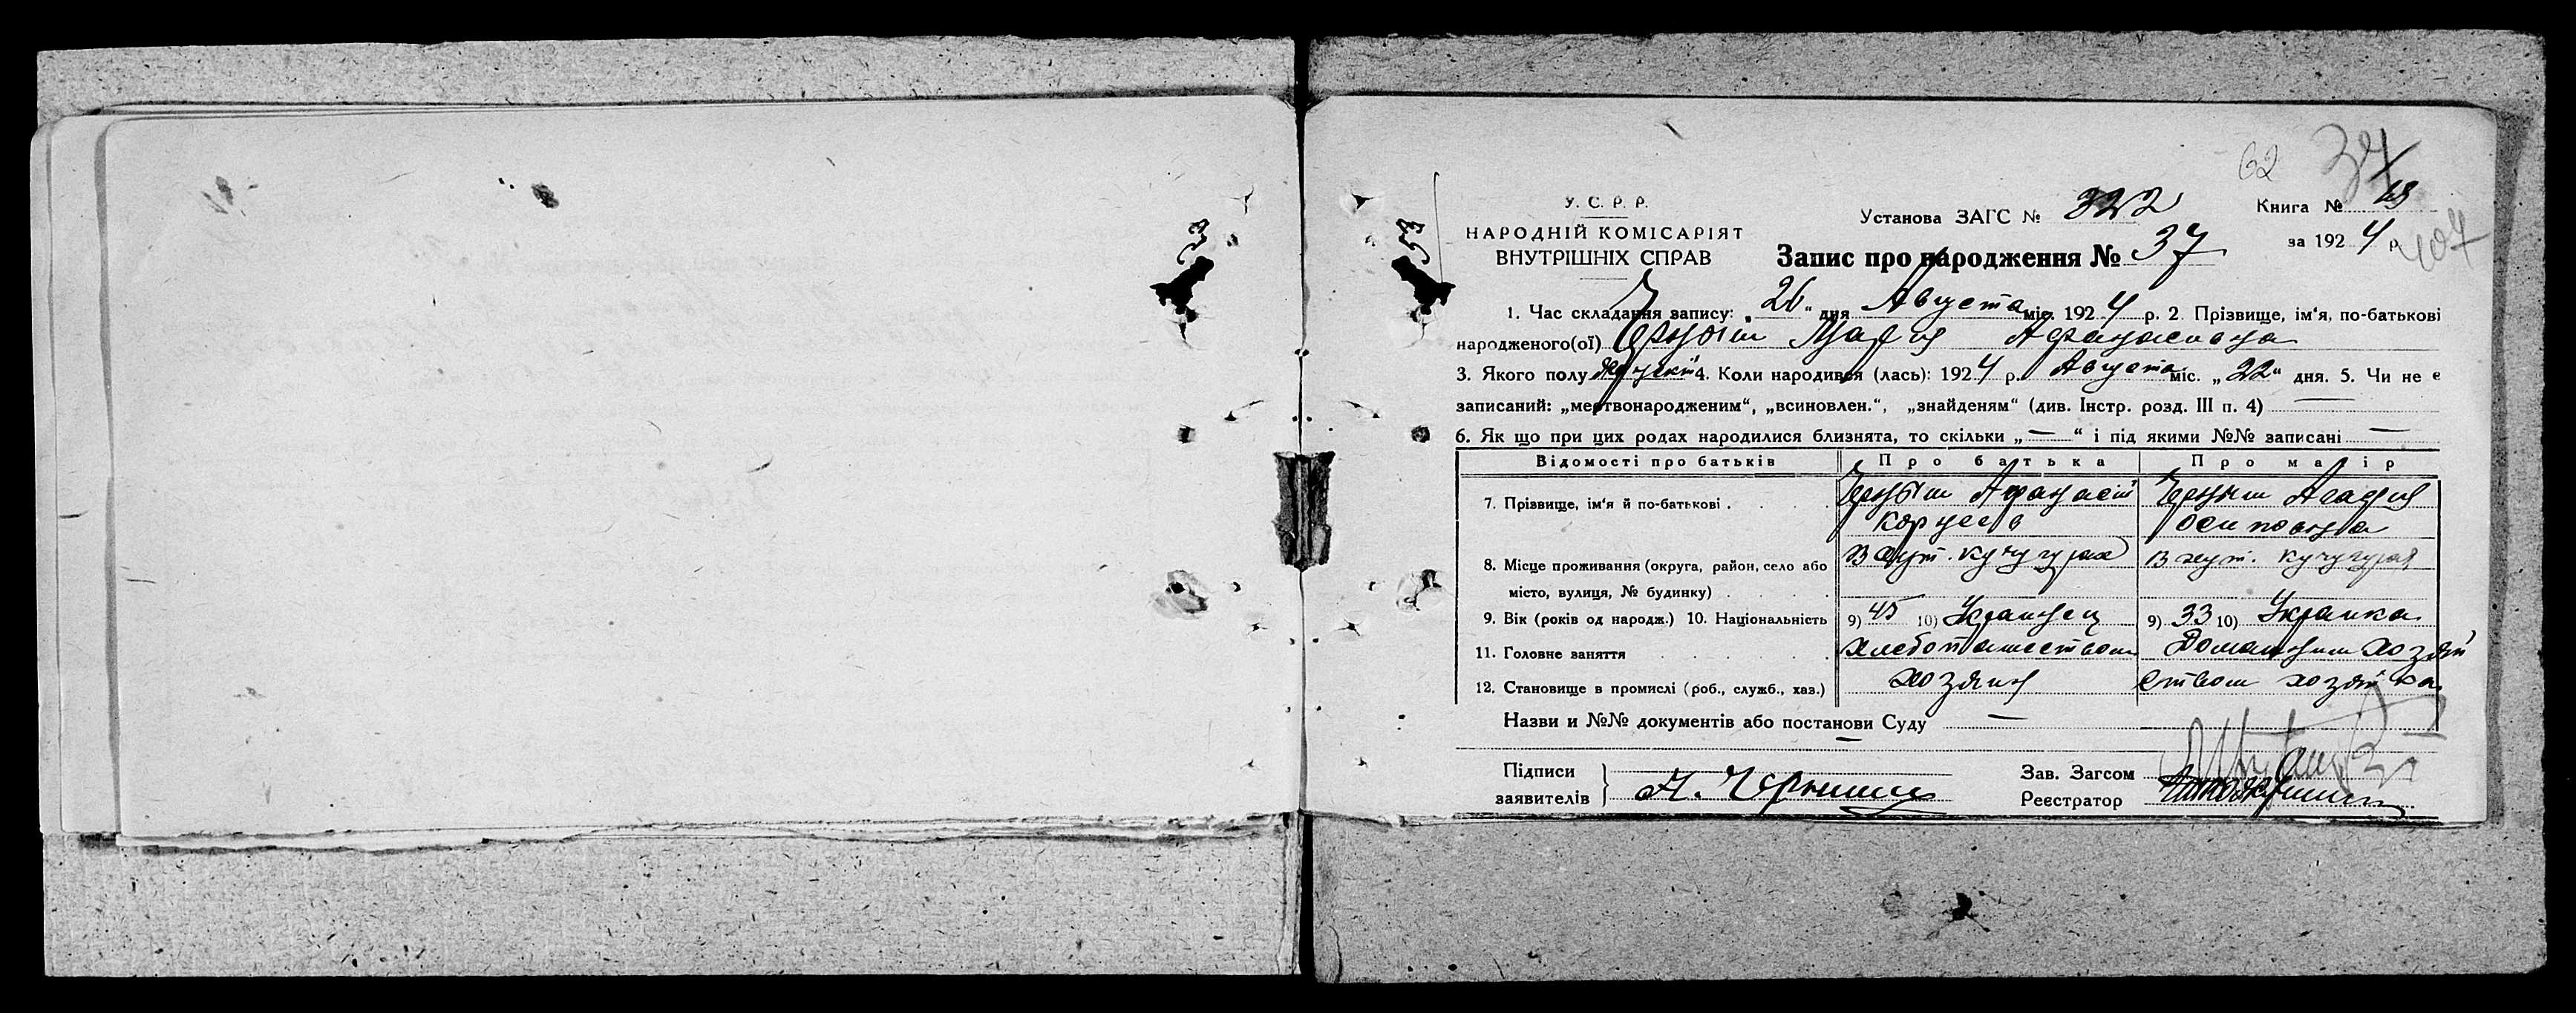 62 37
У. С. Р. Р.
НАРОДНІЙ КОМІСАРІЯТ
ВНУТРІШНІХ СПРАВ
Установа ЗАГС № 322
Книга № 
за 1924 р. 404
Запис про народження № 37
1. Час складання запису: 26 “ дня Августа міс. 1924 р. 2. Прізвище, ім‘я, по-батькові
народженого(ої) Черныш Мария Афанасовна
3. Якого полу 4. Коли народився (лась): 1924 р. Августа міс. „22“ дня. 5. Чи не є
записаний: „мертвонародженим“, „всиновлен.“, „знайденям“ (див. Інстр. розд. III п. 4) —
6. Як що при цих родах народилися близнята, то скільки „—“ і під якими №№ записані —
Відомості про батьків Про батька Про матір
7. Прізвище, ім‘я й по-батькові . . . . Черныш Афанасий Черныш Агафия
Корнеев Осиповна
8. Місце проживання (округа, район, село або В хут. Кучугурах В хут. Кучугурах
місто, вулиця, № будинку) . . . .
9. Вік (років од народж.) 10. Національність 9) 45 10) Украинец 9) 33 10) Украинка
11. Головне заняття . . . . . Хлебопашеством Домашним хозяй
12. Становище в промислі (роб., служб., хаз.) хозяин ством хозяйка
Назви и №№ документів або постанови Суду —
—
Підписи
заявителів } А. Черныш
Зав. Загсом
Реєстратор